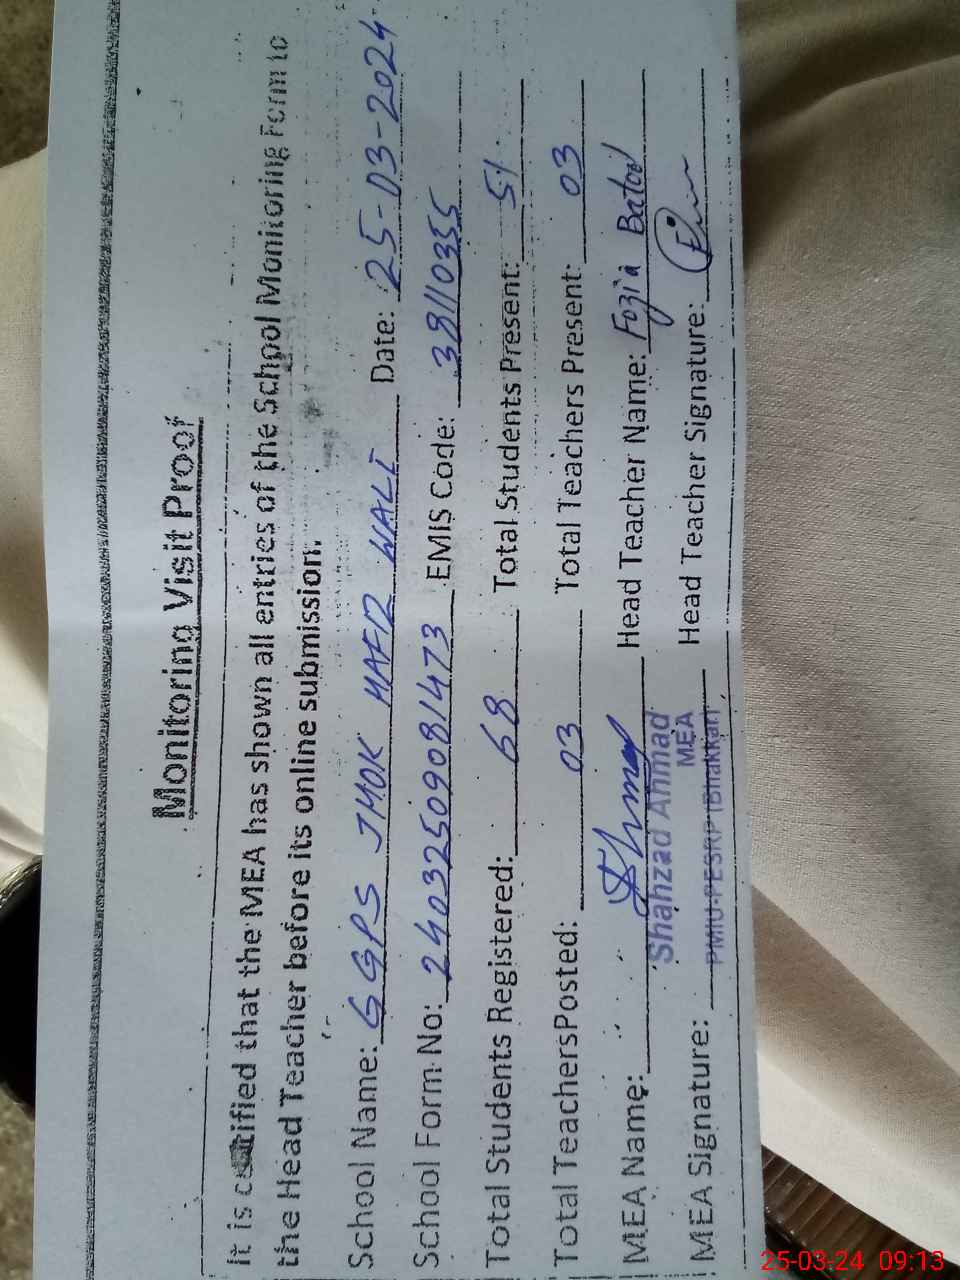 Monitoring Visit Proof
It is certified that the MEA has shown all entries of the School Monitoring Form to
the Head Teacher before its online submission.
School Name: GGPS JHOK HAFIZ WALI Date: 25-03-2024
School Form No: 24032509081473 EMIS Code: 38110355
Total Students Registered: 68 Total Students Present: 51
Total Teachers Posted: 03 Total Teachers Present: 03
MEA Name: Head Teacher Name: Fozia Batool
Shahzad Ahmad
MEA
PMIU-PESRP (Bhakkar)
MEA Signature: Head Teacher Signature:
25-03-24 09:13